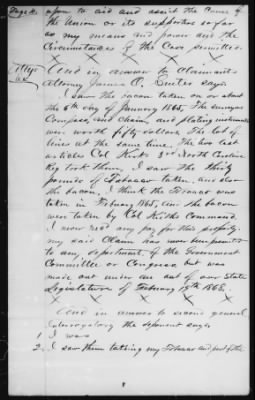 upon to aid and assist the Cause of
the Union or its supporters so far
as my means and power and the
Circumstances of the Case permitted.
And in answer to Claimant's
Attorney James O. says
I saw the bacon taken on or about
the 6th day of January 1865, The surveyors
Compass, and chain, and plating instruments
were worth fifty dollars. The lot of
at the same time. The two last
articles Col Kirk's 3rd North Carolina
took them, I saw the thirty
pounds of Tobacco taken, and also
the bacon, I think the Tobacco was
taken in February 1865, and the bacon
were taken by Col Kirks Command.
I never rec'd any pay for this property.
my said Claim has never been presented
to any department of the Government
Committee or Congress but was
made out under an act of our State
Legislature of February 19th 1868.
And in answer to second general
Interrogatory the deponent says
1 I was
2. I saw them taking my Tobacco and part of the